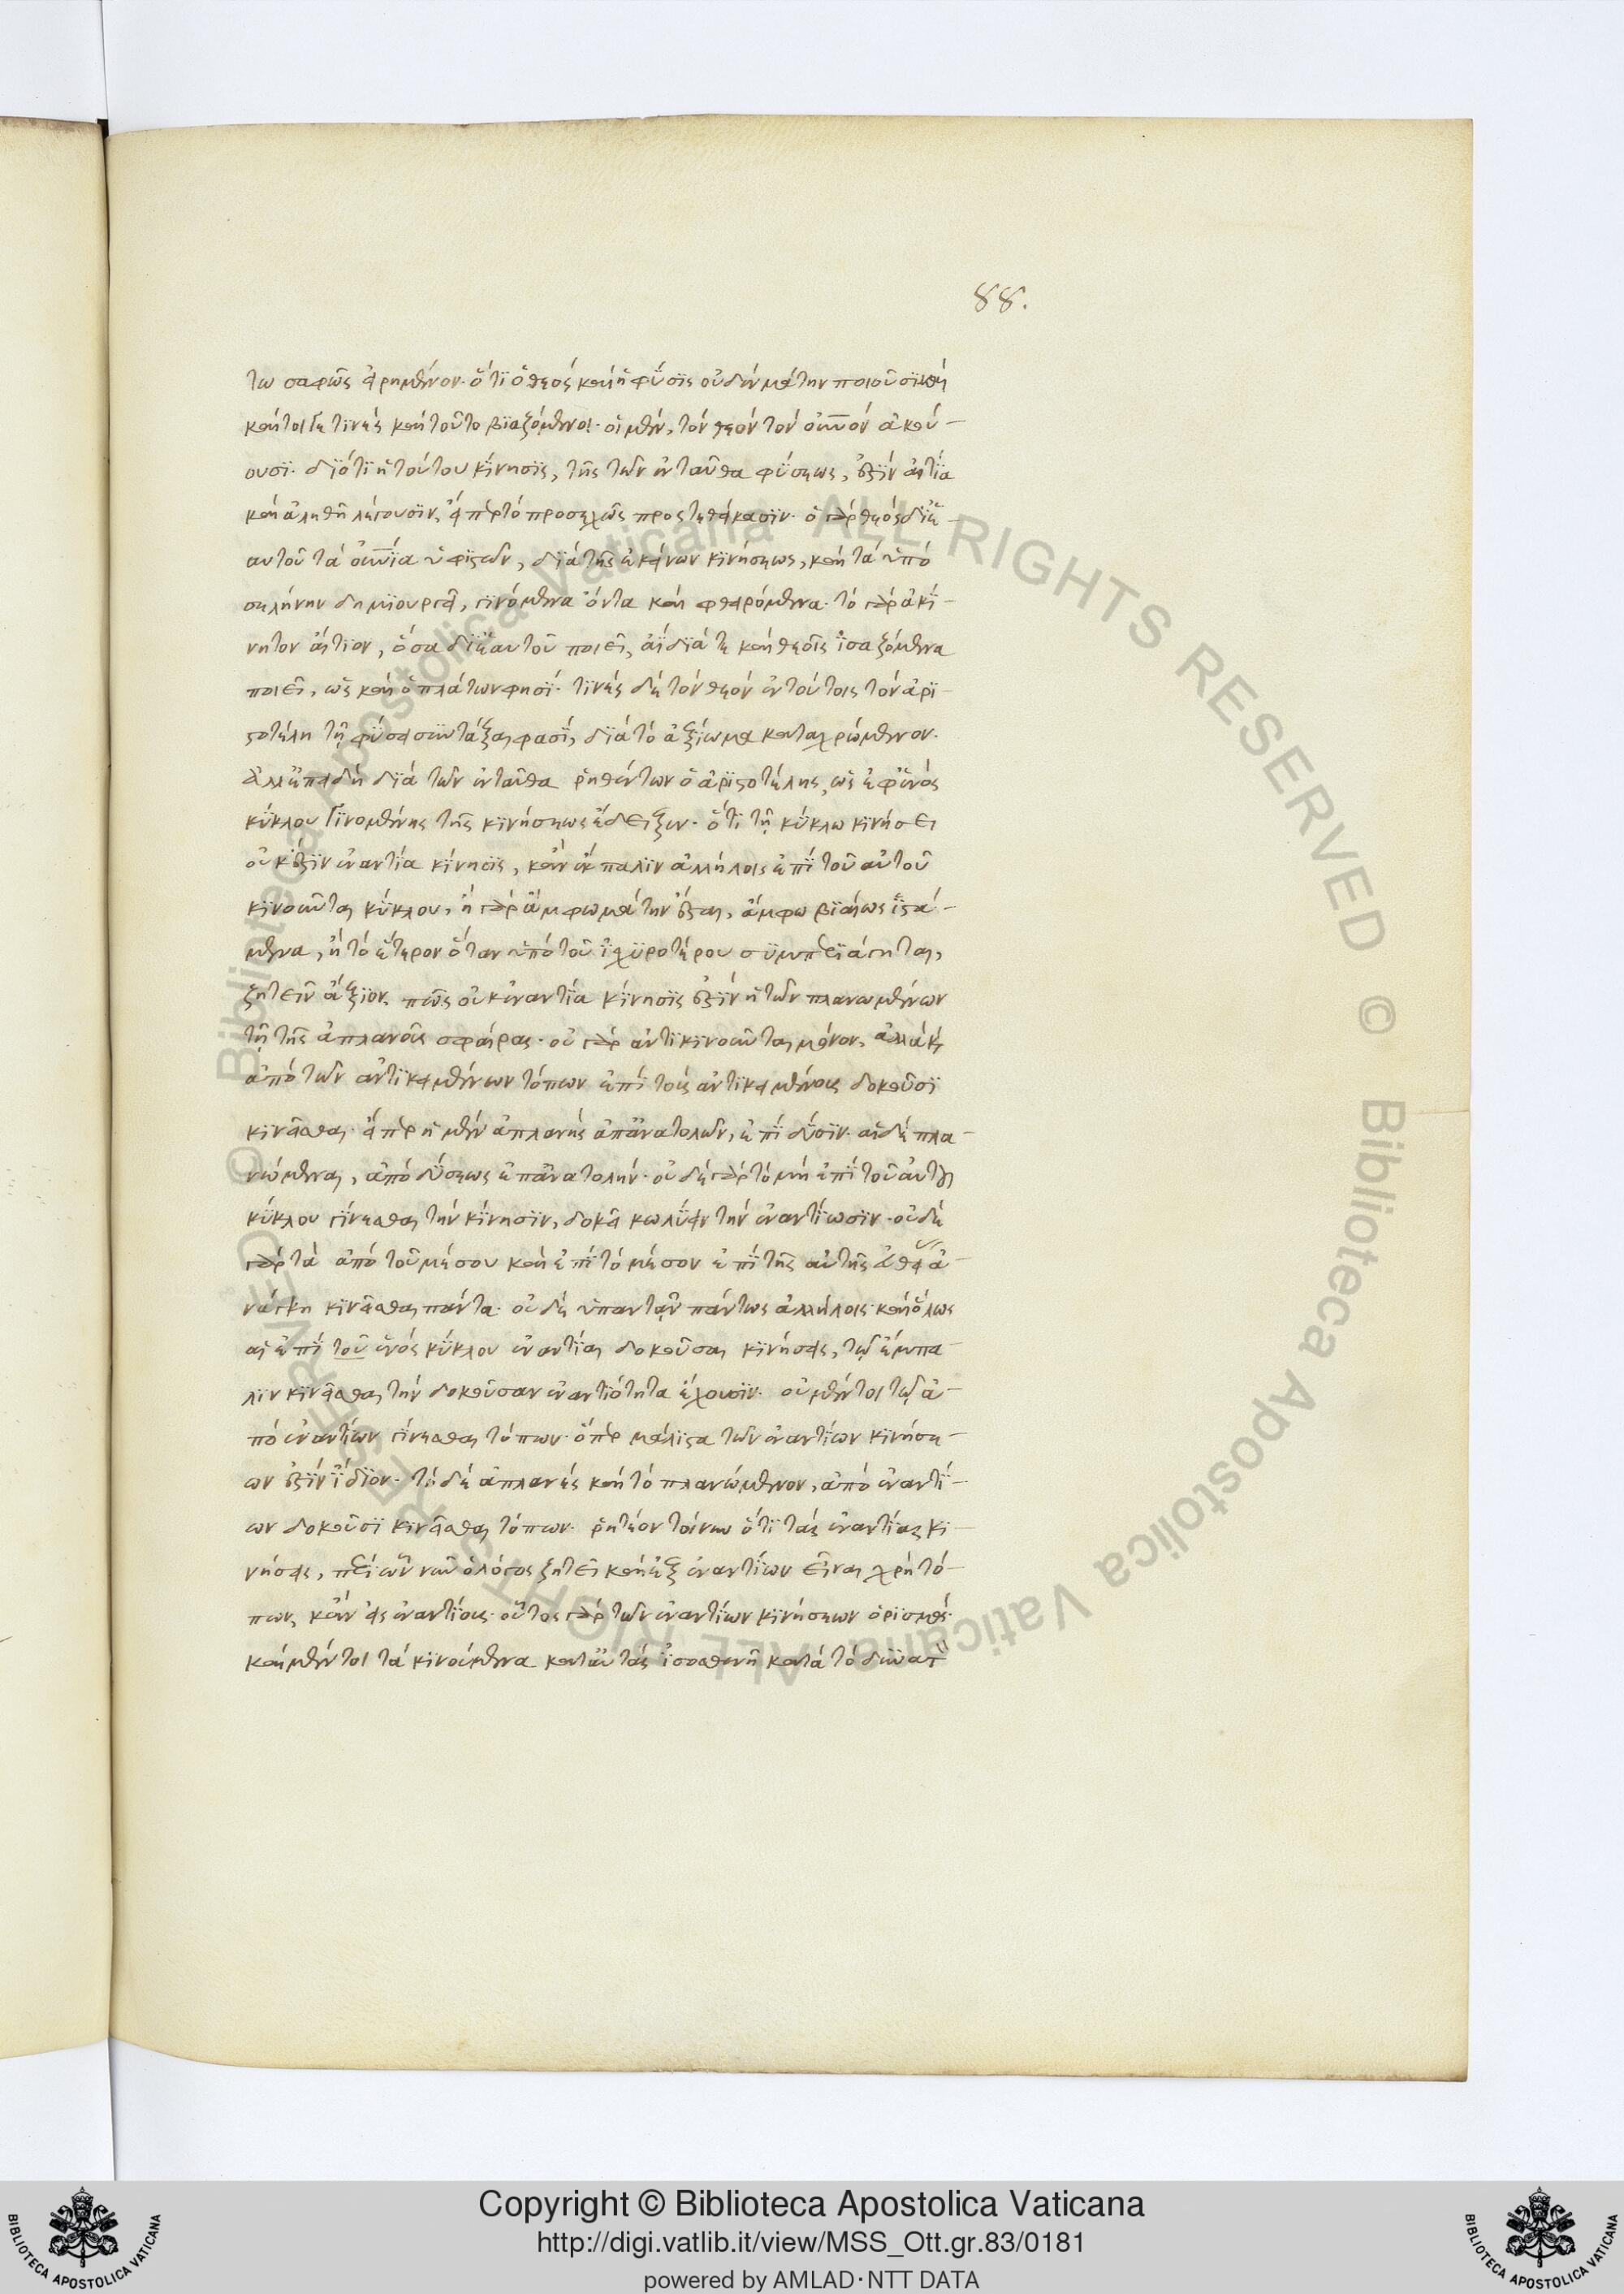 88.
τω σαφῶς εἰρημένον· ὅτι ὁ θεός καὶ ἡ φύσις οὐδέν μάτην ποιοῦσι· καὶ
καίτοι γε τινές καὶ τοῦτο βιαζόμενοι· οἱ μέν, τόν θεόν τόν οὐνον ἀκού-
ουσι· διότι ἡ τούτου κίνησις, τῆς τῶν ἐνταῦθα φύσεως, ἐστίν αἰτία
καὶ ἀληθῆ λέγουσιν, εἴπερ τό προσεχῶς προστεθείκασιν· ὁ γάρ θεός δι' ἑ-
αυτοῦ τά οὐνια ὑφιστῶν, διά τῆς ἐκείνων κινήσεως, καὶ τά ὑπό
σελήνην δημιουργεῖ, γινόμενα ὄντα καὶ φθειρόμενα· τό γάρ ἀκί-
νητον αἴτιον, ὅσα δι' ἑαυτοῦ ποιεῖ, ἀΐδια τε καὶ θεοῖς ἰσαζόμενα
ποιεῖ, ὡς καὶ ὁ πλάτων φησί· τινές δέ τόν θεόν ἐν τούτοις τόν ἀρι-
στοτέλη τῇ φύσει συντάξαι φασί, διά τό ἀξίωμα καταχρώμενον·
ἀλλ' ἐπειδή διά τῶν ἐνταῦθα ῥηθέντων ὁ ἀριστοτέλης, ὡς ἐφ' ἑνός
κύκλου γινομένης τῆς κινήσεως ἔδειξεν· ὅτι τῇ κύκλω κινήσει
οὐκ ἔστιν ἐναντία κίνησις, κἄν ἔμπαλιν ἀλλήλοις ἐπί τοῦ αὐτοῦ
κινοῦνται κύκλου, ἤ γάρ ἄμφω μάτην ἔσται, ἄμφω βιαίως ἱστά-
μενα, ἤ τό ἕτερον ὅταν ὑπό τοῦ ἰσχυροτέρου συμπεριάγηται,
ζητεῖν ἄξιον, πῶς οὐκ ἐναντία κίνησις ἐστίν ἡ τῶν πλανωμένων
τῇ τῆς ἀπλανοῦς σφαίρας· οὐ γάρ ἀντικινοῦνται μόνον, ἀλλά καὶ
ἀπό τῶν ἀντικειμένων τόπων ἐπί τούς ἀντικειμένους δοκοῦσι
κινεῖσθαι· εἴπερ ἡ μέν ἀπλανής ἀπ' ἀνατολῶν, ἐπί δύσιν· αἱ δέ πλα-
νώμεναι, ἀπό δύσεως ἐπ' ἀνατολήν· οὐδέ γάρ τό μή ἐπί τοῦ αὐτοῦ
κύκλου γίνεσθαι τήν κίνησιν, δοκεῖ κωλύειν τήν ἐναντίωσιν· οὐδέ
γάρ τά ἀπό τοῦ μέσου καὶ ἐπί τό μέσον ἐπί τῆς αὐτῆς εὐθείας ἀ-
νάγκη κινεῖσθαι πάντα· οὐδέ ὑπαντᾷν πάντως ἀλλήλοις· καὶ ὅλως
αἱ ἐπί τοῦ ἑνός κύκλου ἐναντίαι δοκοῦσαι κινήσεις, τῷ ἔμπα-
λιν κινεῖσθαι τήν δοκοῦσαν ἐναντιότητα ἔχουσιν· οὐ μέντοι τῷ ἀ-
πό ἐναντίων γίνεσθαι τόπων· ὅπερ μάλιστα τῶν ἐναντίων κινήσε-
ων ἐστίν ἴδιον· τό δέ ἀπλανές καὶ τό πλανώμενον, ἀπό ἐναντί-
ων δοκοῦσι κινεῖσθαι τόπων· ῥητέον τοίνυν ὅτι τάς ἐναντίας κι-
νήσεις, περί ὧν νῦν ὁ λόγος ζητεῖ καὶ ἐξ ἐναντίων εἶναι χρή τό-
πων, κἄν εἰς ἐναντίους· οὗτος γάρ τῶν ἐναντίων κινήσεων ὁρισμός·
καὶ μέντοι τά κινούμενα κατ' αὐτάς ἰσοσθενῆ κατά τό δυνατ
Copyright © Biblioteca Apostolica Vaticana
http://digi.vatlib.it/view/MSS_Ott.gr.83/0181
powered by AMLAD·NTT DATA
BIBLIOTECA APOSTOLICA VATICANA
BIBLIOTECA APOSTOLICA VATICANA
© Biblioteca Apostolica Vaticana ALL RIGHTS RESERVED © Biblioteca Apostolica Vaticana ALL RIGHTS RESERVED